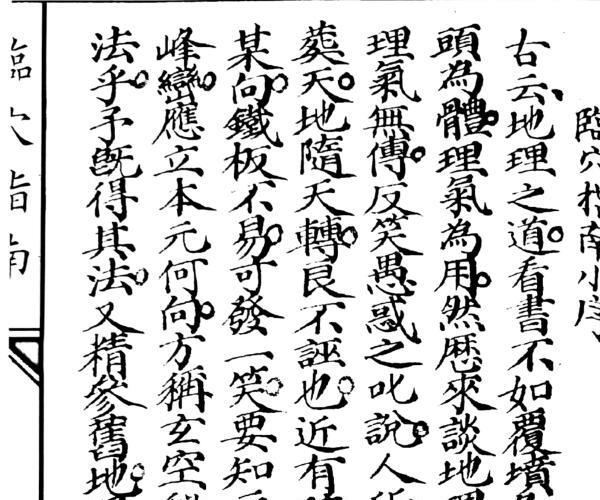 臨穴指南小序
古云地理之道看書不如覆墳
頭為體理氣為用然歷來談地理
理氣無傳反笑愚惑之叱說人
葬天地隨天轉良不誣也近有
某向鐵板不易可發一笑要知
峰巒應立本元何向方稱玄空
法乎予既得其法又精參舊地
臨穴指南